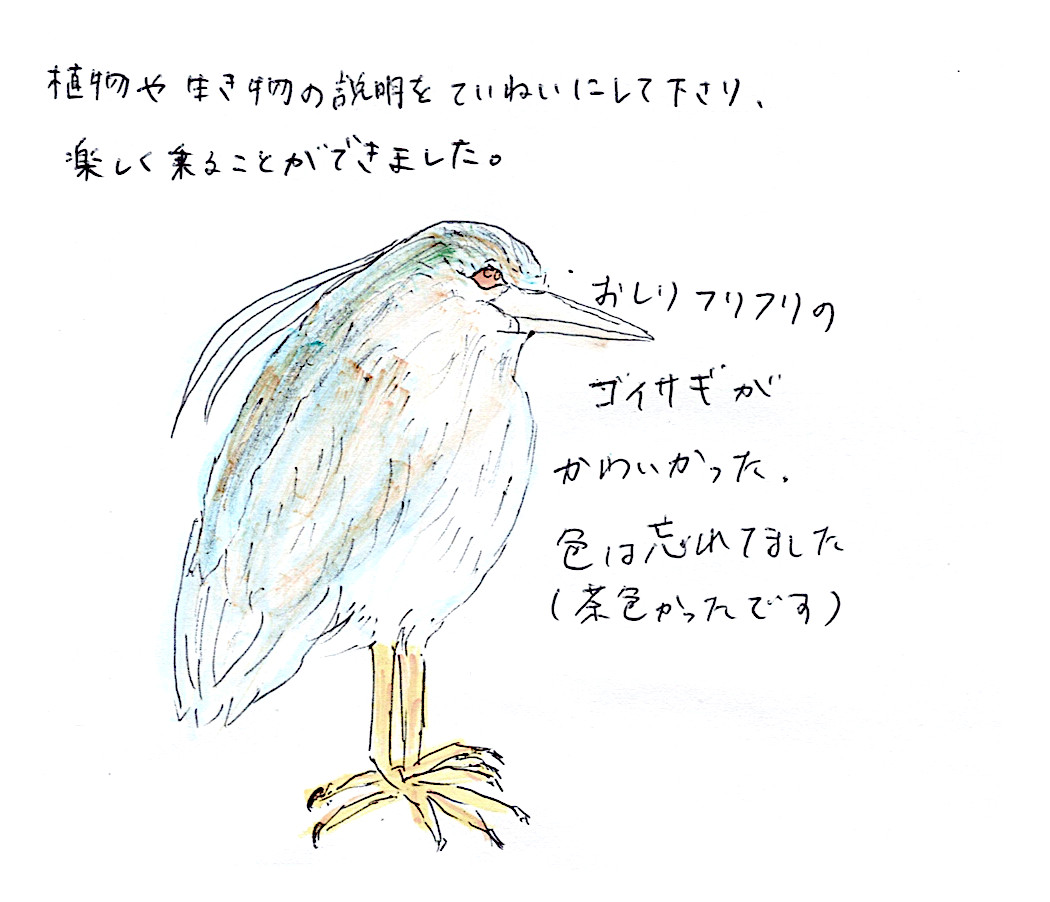 植物や生き物の説明をていねいにして下さり、
楽しく乗ることができました。
おしりフリフリの
ゴイサギが
かわいかった.
色は忘れてました
(茶色かったです)